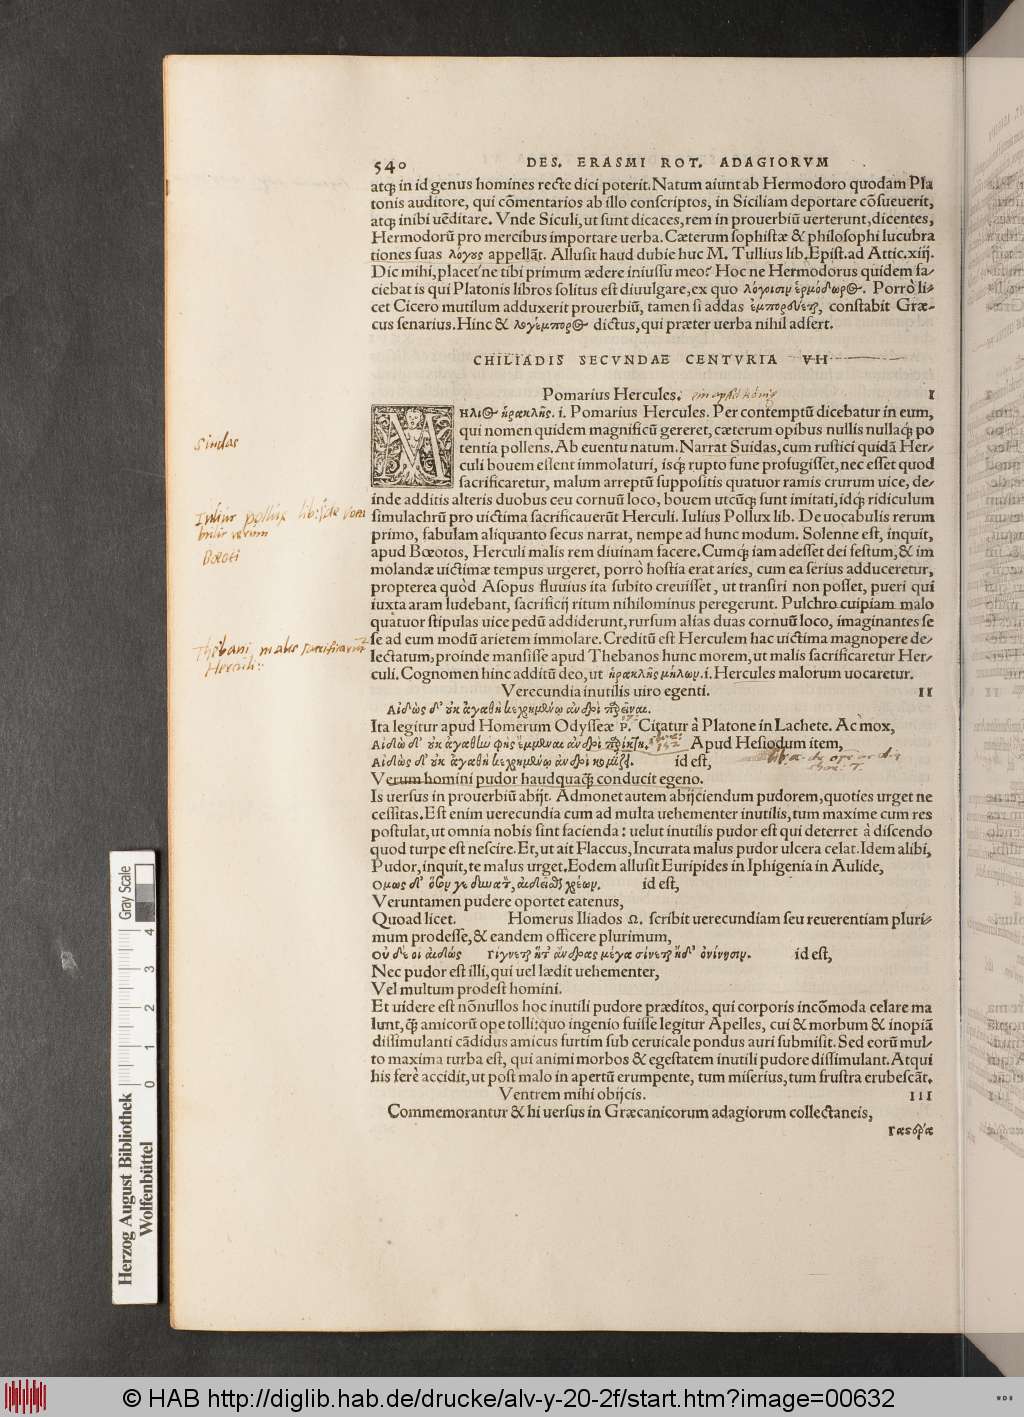 540 DES. ERASMI ROT. ADAGIORVM
atq; in id genus homines recte dici poterit. Natum aiunt ab Hermodoro quodam Pla
tonis auditore, qui cōmentarios ab illo conscriptos, in Siciliam deportare cōsueuerit,
atq; inibi uēditare. Vnde Siculi, ut sunt dicaces, rem in prouerbiū uerterunt, dicentes,
Hermodorū pro mercibus importare uerba. Cæterum sophistæ & philosophi lucubra
tiones suas λόγους appellāt. Allusit haud dubie huc M. Tullius lib. Epist. ad Attic. xiij.
Dic mihi, placet'ne tibi primum ædere iniussu meo? Hoc ne Hermodorus quidem fa-
ciebat is qui Platonis libros solitus est diuulgare, ex quo λόγοισιν ἑρμόδωρος. Porrò li-
cet Cicero mutilum adduxerit prouerbiū, tamen si addas ἐμπορεύεται, constabit Græ-
cus senarius. Hinc & λογέμπορος dictus, qui præter uerba nihil adfert.
CHILIADIS SECVNDAE CENTVRIA VII
Pomarius Hercules. I
ΜΗΛΙος ἡρακλῆς. i. Pomarius Hercules. Per contemptū dicebatur in eum,
qui nomen quidem magnificū gereret, cæterum opibus nullis nullaq; po
tentia pollens. Ab euentu natum. Narrat Suidas, cum rustici quidā Her-
culi bouem essent immolaturi, isq; rupto fune profugisset, nec esset quod
sacrificaretur, malum arreptū suppositis quatuor ramis crurum uice, de-
inde additis alteris duobus ceu cornuū loco, bouem utcūq; sunt imitati, idq; ridiculum
simulachrū pro uictima sacrificauerūt Herculi. Iulius Pollux lib. De uocabulis rerum
primo, fabulam aliquanto secus narrat, nempe ad hunc modum. Solenne est, inquit,
apud Bœotos, Herculi malis rem diuinam facere. Cumq; iam adesset dei festum, & im
molandæ uictimæ tempus urgeret, porrò hostia erat aries, cum ea serius adduceretur,
propterea quòd Asopus fluuius ita subito creuisset, ut transiri non posset, pueri qui
iuxta aram ludebant, sacrificij ritum nihilominus peregerunt. Pulchro cuipiam malo
quatuor stipulas uice pedū addiderunt, rursum alias duas cornuū loco, imaginantes se
se ad eum modū arietem immolare. Creditū est Herculem hac uictima magnopere de-
lectatum, proinde mansisse apud Thebanos hunc morem, ut malis sacrificaretur Her-
culi. Cognomen hinc additū deo, ut ἡρακλῆς μήλων. i. Hercules malorum uocaretur.
Verecundia inutilis uiro egenti. II
Αἰδὼς δ' οὐκ ἀγαθὴ κεχρημένῳ ἀνδρὶ παρεῖναι.
Ita legitur apud Homerum Odysseæ ρ. Citatur à Platone in Lachete. Ac mox,
Apud Hesiodum item,
Αἰδὼς δ' οὐκ ἀγαθὴ κεχρημένῳ ἀνδρὶ κομίζει. id est,
Verum homini pudor haudquaq̄ conducit egeno.
Is uersus in prouerbiū abijt. Admonet autem abijciendum pudorem, quoties urget ne
cessitas. Est enim uerecundia cum ad multa uehementer inutilis, tum maxime cum res
postulat, ut omnia nobis sint facienda: uelut inutilis pudor est qui deterret à discendo
quod turpe est nescire. Et, ut ait Flaccus, Incurata malus pudor ulcera celat. Idem alibi,
Pudor, inquit, te malus urget. Eodem allusit Euripides in Iphigenia in Aulide,
id est,
Veruntamen pudere oportet eatenus,
Quoad licet. Homerus Iliados Ω. scribit uerecundiam seu reuerentiam pluri-
mum prodesse, & eandem officere plurimum,
Οὐ δέ οἱ αἰδὼς Γίγνεται ἥτ' ἄνδρας μέγα σίνεται ἠδ' ὀνίνησιν. id est,
Nec pudor est illi, qui uel lædit uehementer,
Vel multum prodest homini.
Et uidere est nōnullos hoc inutili pudore præditos, qui corporis incōmoda celare ma
lunt, q̄ amicorū ope tolli: quo ingenio fuisse legitur Apelles, cui & morbum & inopiā
dissimulanti cādidus amicus furtim sub ceruicale pondus auri submisit. Sed eorū mul-
to maxima turba est, qui animi morbos & egestatem inutili pudore dissimulant. Atqui
his ferè accidit, ut post malo in apertū erumpente, tum miserius, tum frustra erubescāt.
Ventrem mihi obijcis. III
Commemorantur & hi uersus in Græcanicorum adagiorum collectaneis,
Γαστρα
Suidas
Bœoti
Thebani malis sacrificarunt
Herculi:
Gray Scale
0 1 2 3 4
Herzog August Bibliothek
Wolfenbüttel
© HAB http://diglib.hab.de/drucke/alv-y-20-2f/start.htm?image=00632